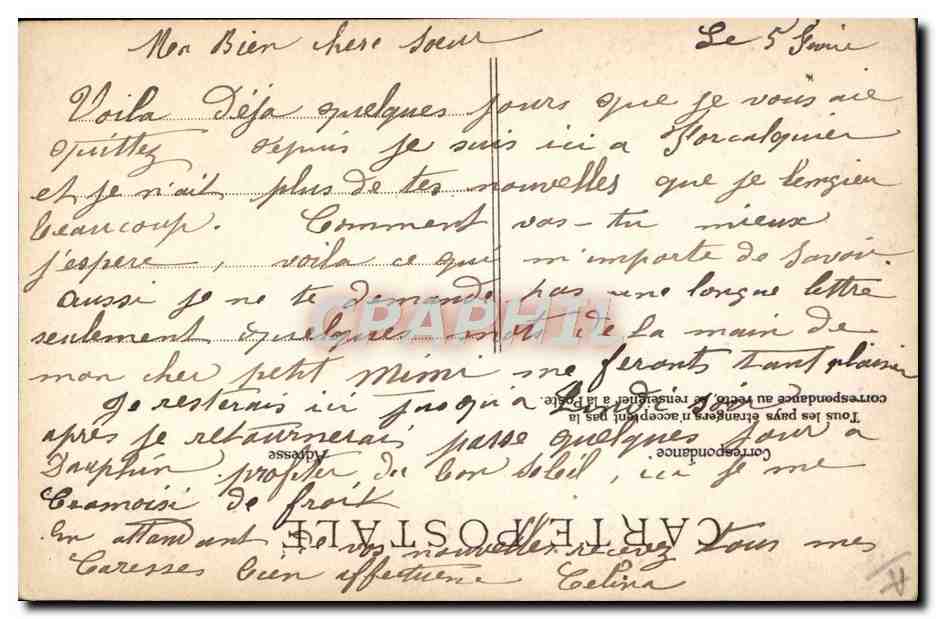 Mon Bien chere Sœur Le 5 Fevrie
Voila Déja quelques jours que je vous aie
quittez depuis je suis ici a Forcalquier
et je n'ait plus de tes nouvelles que je lengieu
beaucoup. Comment vas-tu mieux
j'espere, voila ce qui m'importe de Savoir.
aussi je ne te demande pas une longue lettre
seulement quelques mots de la main de
mon cher petit Mimi me feront tant plaisir
Je resterais ici jusqu'a Lindi soir
après je retournerais passe quelques jour a
Dauphin profiter du bon Soleil, ici je me
Cramoisi de froit
En attendant de vos nouvelles recevez tous mes
Caresses bien affectueuse Celina
CARTE POSTALE
Correspondance
Adresse
Tous les pays étrangers n'acceptent pas la
correspondance au recto, se renseigner à la Poste.
CPAPHIL